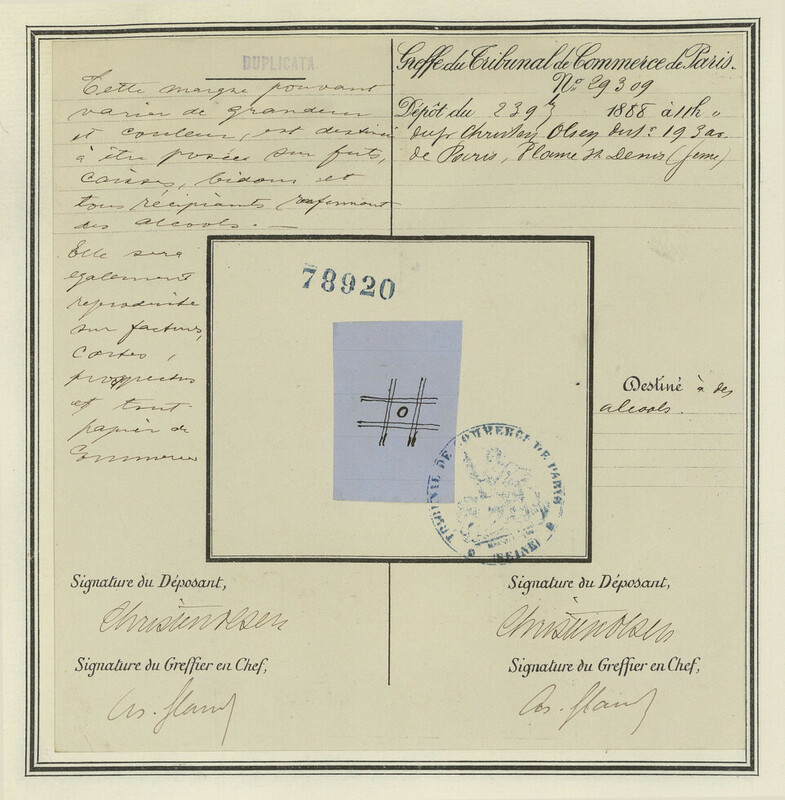 DUPLICATA.
Cette marque pouvant
varier de grandeur
et couleur, est destinée
à être posée sur futs,
caisses, bidons et
tous récipiants renfermant
des alcools. —
Elle sera
egalement
reproduite
sur factures,
cartes,
prospectus
et tout
papier de
Commerce
Greffe du Tribunal de Commerce de Paris.
No. 29309
Dépôt du 23 9 1888 à 11h
Christen Olsen
de Paris, Plaine St Denis (Seine)
78920
O
TRIBUNAL DE COMMERCE DE PARIS
(SEINE)
Destiné à des
alcools.
Signature du Déposant,
Christen Olsen
Signature du Greffier en Chef,
Signature du Déposant,
Christen Olsen
Signature du Greffier en Chef,